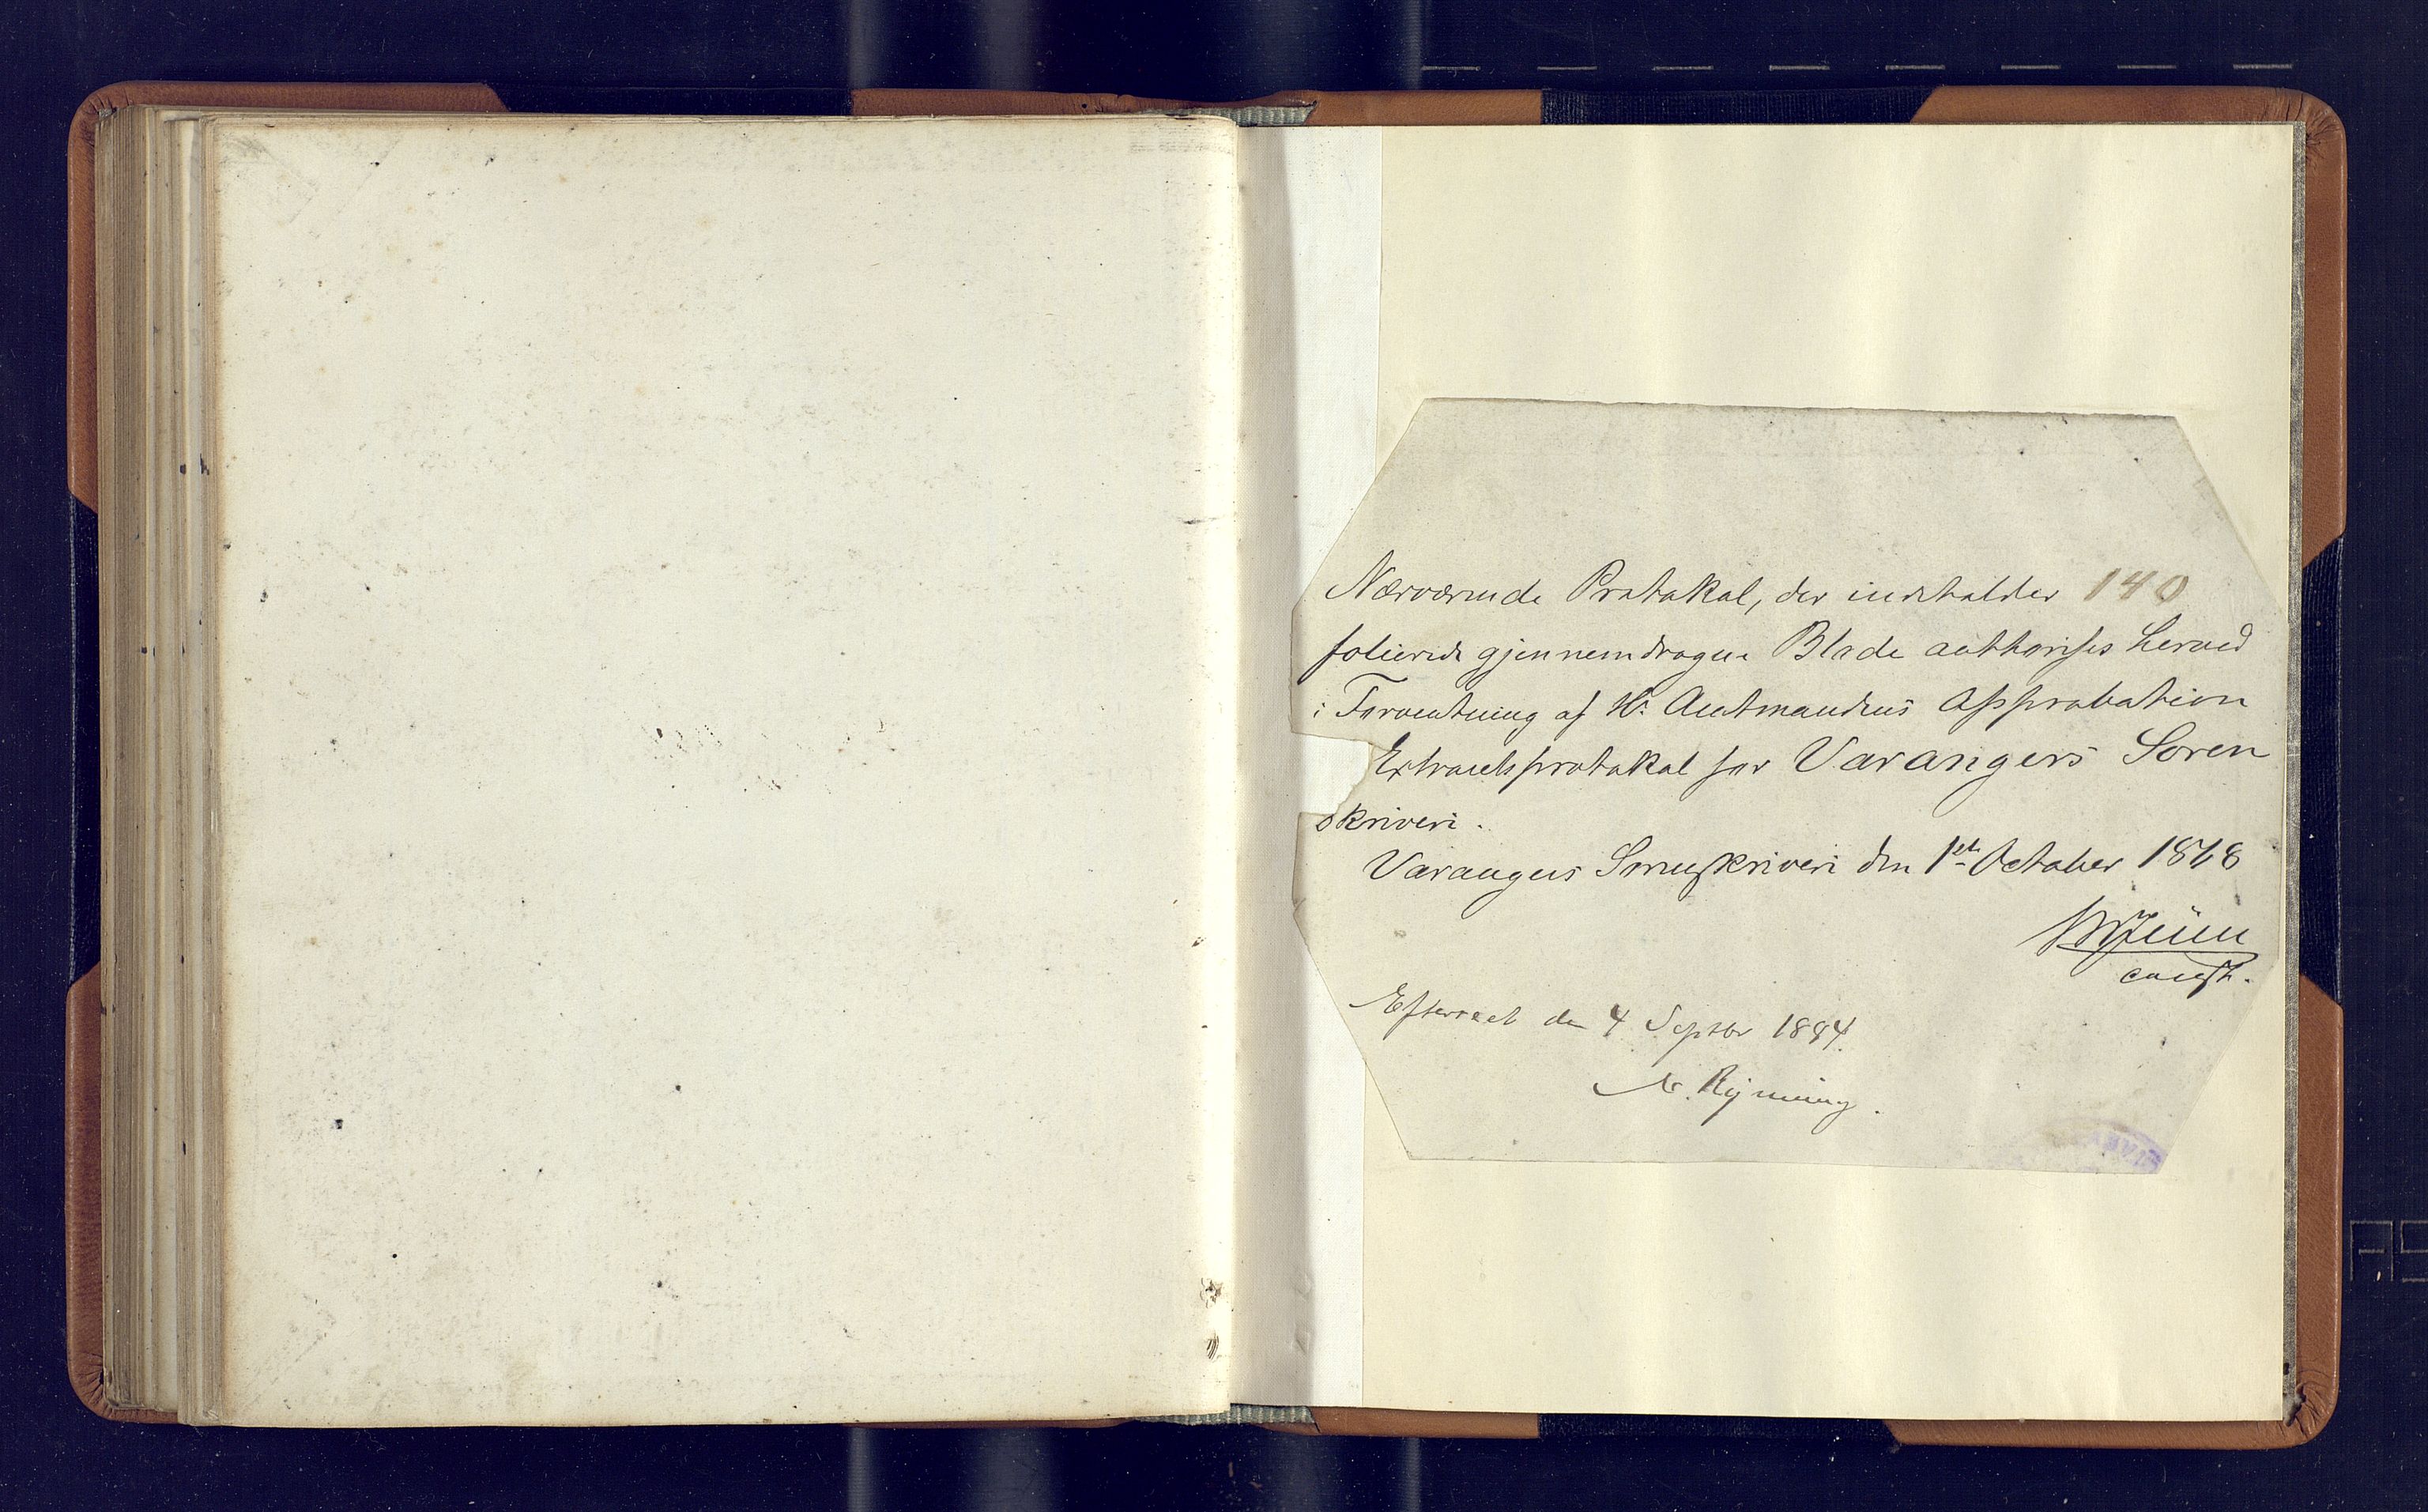 Nærværende Protokol, der indeholder 140
folierede gjennemdragne Blade authorises herved
i Forventning af Hr. Amtmandens Approbation
Extraretsprotokol for Varangers Soren
skriveri.
Varangers Sorenskriveri den 1ste October 1868
const.
Efterseet den 4 Septbr 1884.
N. Rynning.